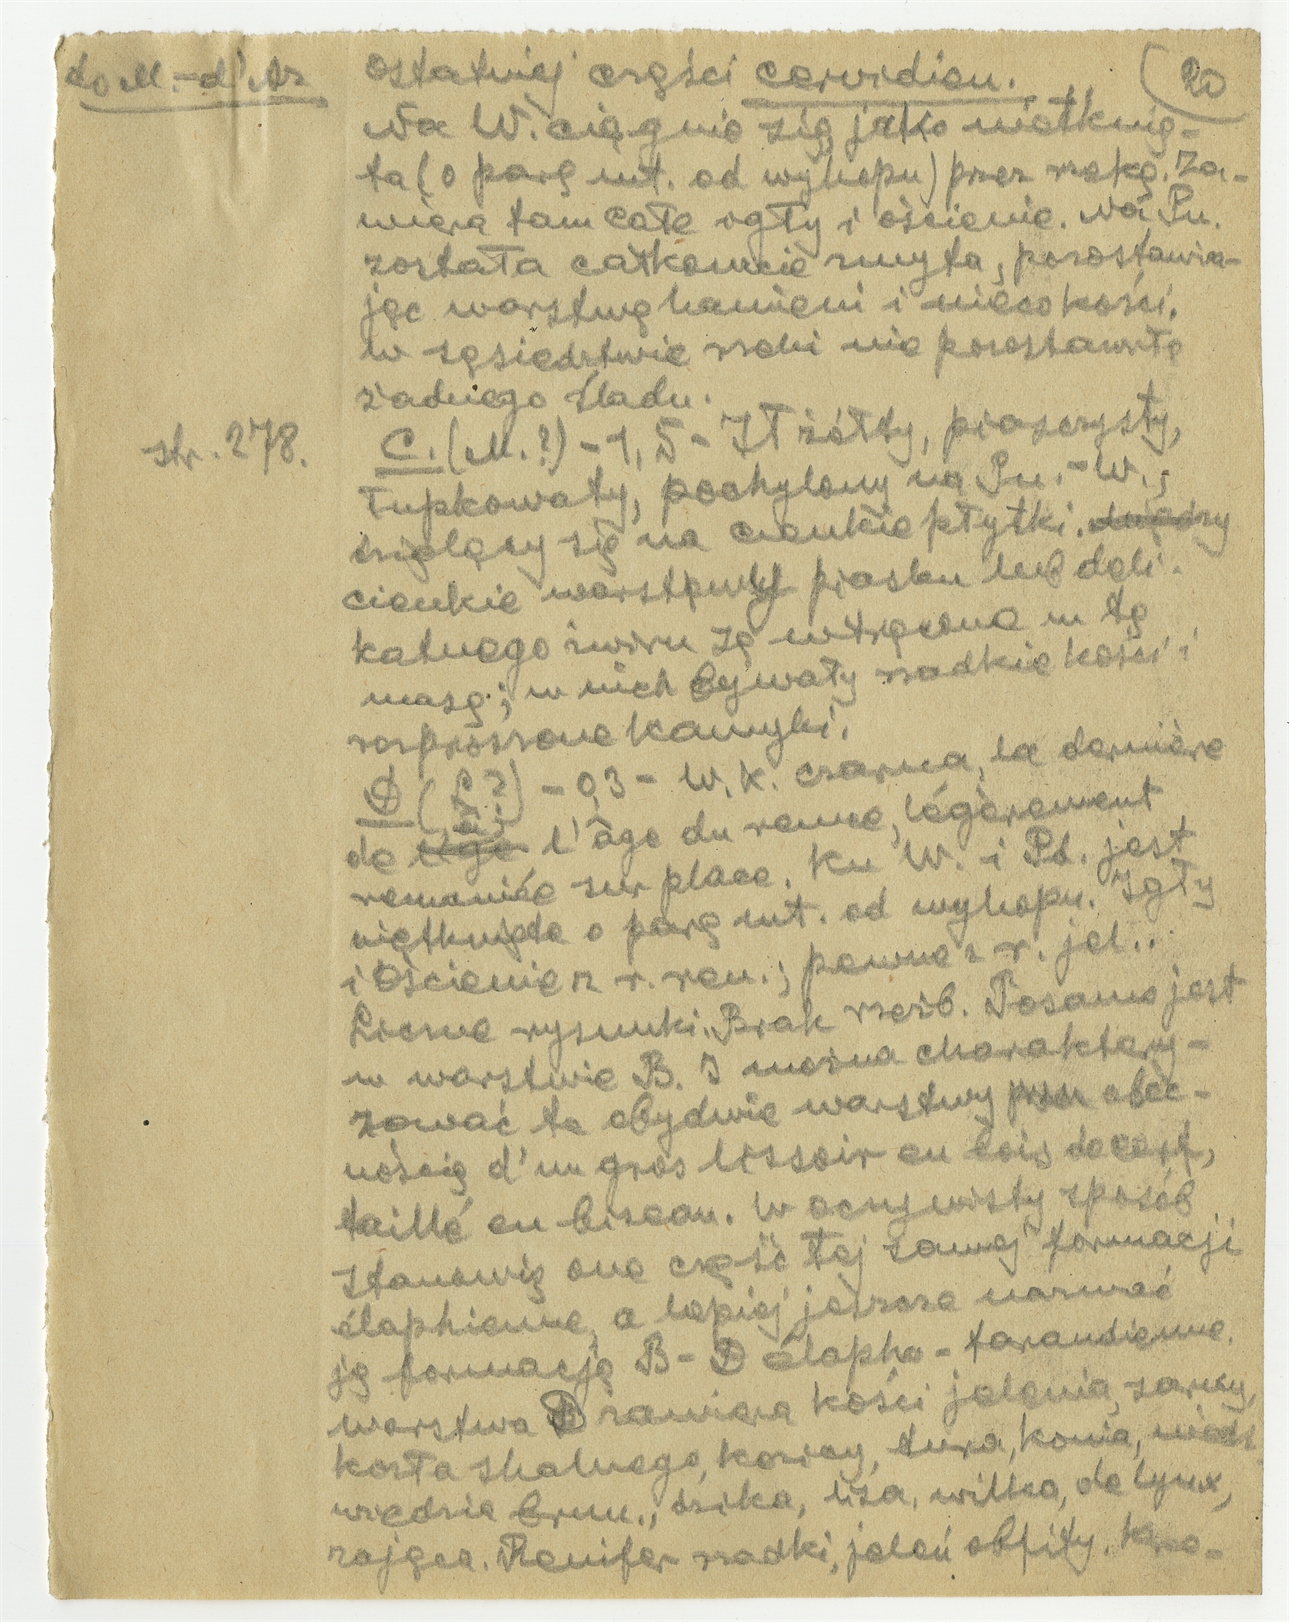 do M.-d'Az
ostatniej części cervidien.
20
Na W. ciągnie się jako nietknię-
ta (o parę mt. od wykopu) przez rzekę. Za-
wiera tam całe igły i ościenie. Na Pn.
została całkowicie zmyta, pozostawia-
jąc warstwę kamieni i nieco kości.
W sąsiedztwie rzeki nie pozostawiła
żadnego śladu.
str. 278.
C. (M.?) - 1,5 - Ił żółty, piaszczysty,
łupkowaty, pochylony na Pn.-W.,
dzielący się na cienkie płytki.
cienkie warstewki piasku lub deli-
katnego żwiru są wtrącone w tę
masę; w nich bywały rzadkie kości i
rozproszone kamyki.
D - 0,3 - W.k. czarna, la dernière
de l'âge du renne, légèrement
remaniée sur place. Ku W. i Pd. jest
nietknięta o parę mt. od wykopu. Igły
i ościenie z r. ren.; pewne z r. jel..
Liczne rysunki. Brak rzeźb. To samo jest
w warstwie B. I można charaktery-
zować te obydwie warstwy przez obec-
nością d'un gros lissoir en bois de cerf,
taillé en biseau. W oczywisty sposób
stanowią one część tej samej formacji
élaphienne, a lepiej jeszcze nazwać
ją formacją B-D élapho-tarandienne.
Warstwa D zawiera kości jelenia, sarny,
kozła skalnego, kozicy, tura, konia,
wiedzia brun., dzika, lisa, wilka, de lynx,
zająca. Renifer rzadki, jeleń obfity.